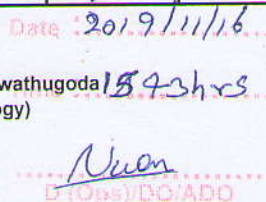 Date 2019/11/16
wathugoda 1543hrs
ogy)
D (Ops)/DO/ADO